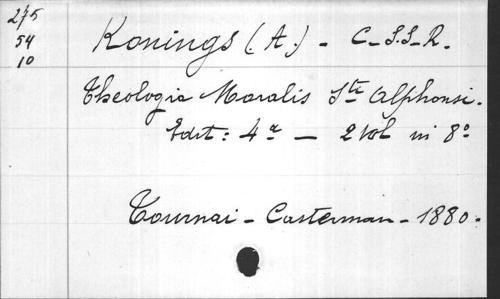 275
54
10
Konings (A.) - C-S.S-R.
Theologia Moralis Sti Alphonsi.
Edit: 4a — 2 vol in 8o
Tournai - Casterman - 1880.